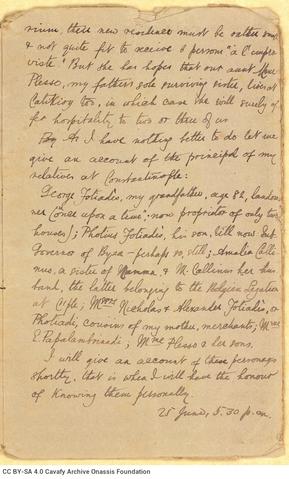 new residence must be rather small
& not quite fit to receive 8 persons "à l'impro-
viste". But she has hopes that our aunt Mme
Plesso, my father's sole surviving sister, lives at
Catikioy too, in which case she will surely of-
fer hospitality to two or three of us
As I have nothing better to do let me
give an account of the principal of my
relatives at Constantinople:
George Fotiades, my grandfather, age 82, landow-
ner ("once upon a time"- now proprietor of only two
houses); Photius Fotiades, his son, till now Sub
Governor of Bysa - perhaps so, still; Amalia Calli-
nus, a sister of Mamma, & M. Callinus her hus-
band, the latter belonging to the Belgian Legation
at C/ple; Nicholas & Alexander Fotiades, or
Photiadi, cousins of my mother, merchants; Mme
Mme Plesso & her sons.
I will give an account of these personages
shortly, that is when I will have the honour
of knowing them personally.
25 June, 5.30 p.m.
CC BY-SA 4.0 Cavafy Archive Onassis Foundation